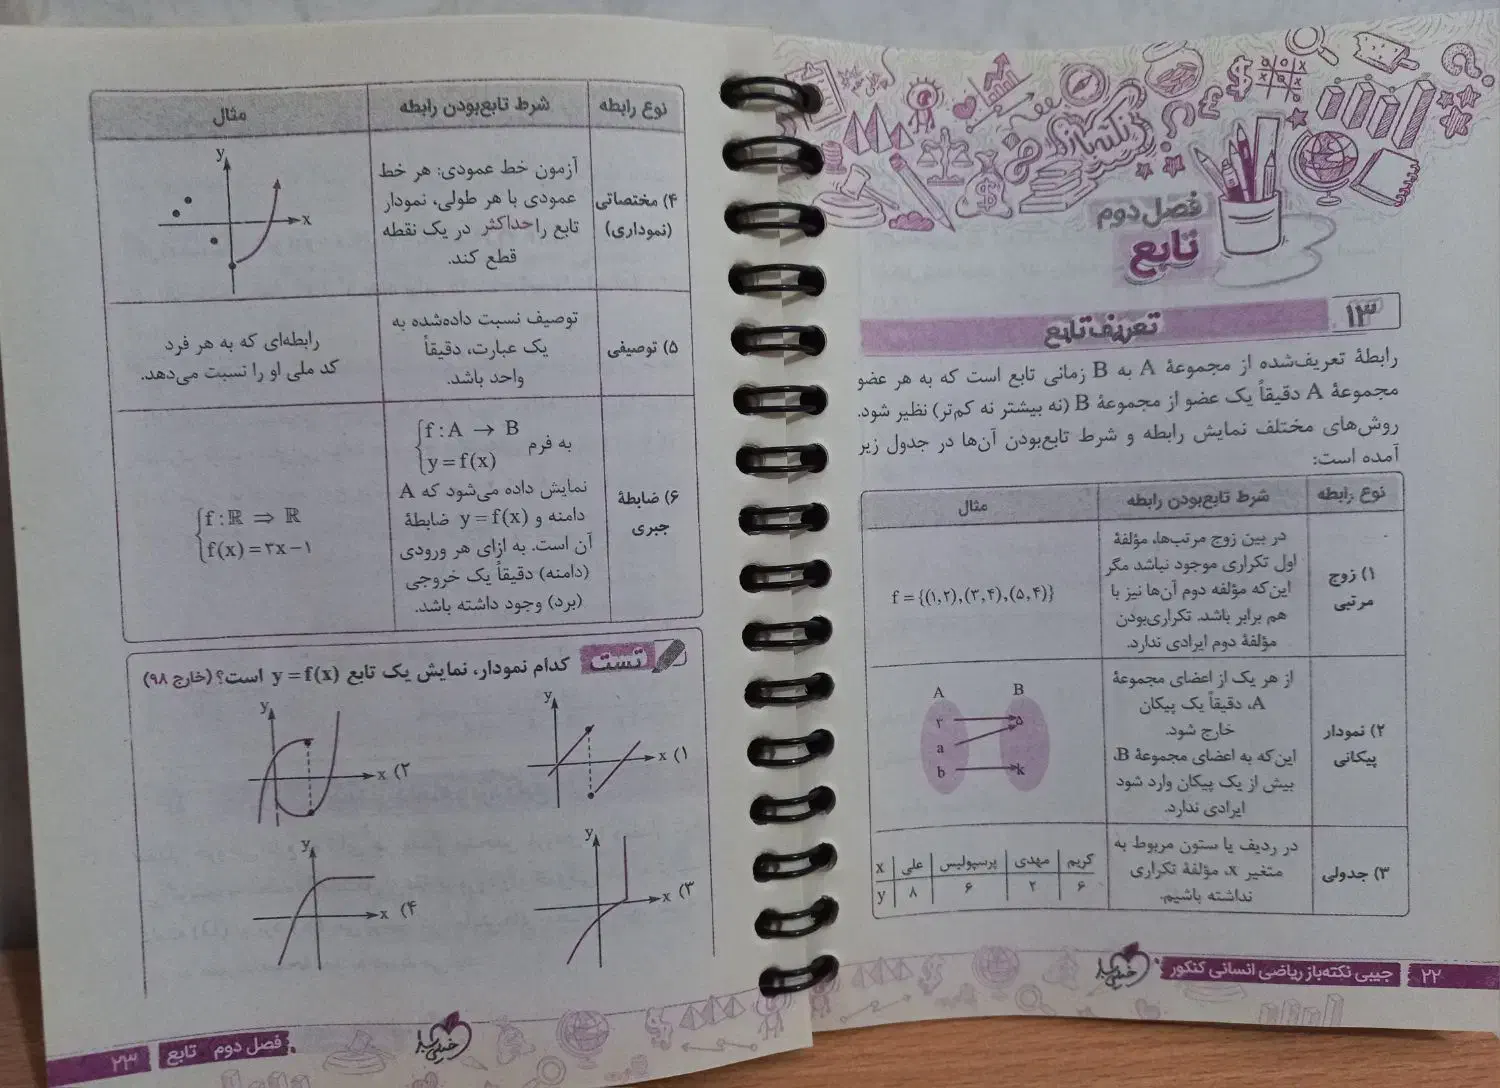 نکته‌باز
فصل دوم
تابع
۱۳
تعریف تابع
رابطهٔ تعریف‌شده از مجموعهٔ A به B زمانی تابع است که به هر عضو
مجموعهٔ A دقیقاً یک عضو از مجموعهٔ B (نه بیشتر نه کم‌تر) نظیر شود.
روش‌های مختلف نمایش رابطه و شرط تابع‌بودن آن‌ها در جدول زیر
آمده است:
نوع رابطه
شرط تابع‌بودن رابطه
مثال
۱) زوج
مرتبی
در بین زوج مرتب‌ها، مؤلفهٔ
اول تکراری موجود نباشد مگر
این‌که مؤلفه دوم آن‌ها نیز با
هم برابر باشد. تکراری‌بودن
مؤلفهٔ دوم ایرادی ندارد.
f = {(۱,۲),(۳,۴),(۵,۴)}
۲) نمودار
پیکانی
از هر یک از اعضای مجموعهٔ
A، دقیقاً یک پیکان
خارج شود.
این‌که به اعضای مجموعهٔ B،
بیش از یک پیکان وارد شود
ایرادی ندارد.
A B
۲ ۵
a
b k
۳) جدولی
در ردیف یا ستون مربوط به
متغیر x، مؤلفهٔ تکراری
نداشته باشیم.
x | علی | پرسپولیس | مهدی | کریم
y | ۸ | ۶ | ۲ | ۶
۲۲
جیبی نکته‌باز ریاضی انسانی کنکور
خیلی سبز
نوع رابطه
شرط تابع‌بودن رابطه
مثال
۴) مختصاتی
(نموداری)
آزمون خط عمودی: هر خط
عمودی با هر طولی، نمودار
تابع را حداکثر در یک نقطه
قطع کند.
y
x
۵) توصیفی
توصیف نسبت داده‌شده به
یک عبارت، دقیقاً
واحد باشد.
رابطه‌ای که به هر فرد
کد ملی او را نسبت می‌دهد.
۶) ضابطهٔ
جبری
به فرم
f : A → B
y = f(x)
نمایش داده می‌شود که A
دامنه و y = f(x) ضابطهٔ
آن است. به ازای هر ورودی
(دامنه) دقیقاً یک خروجی
(برد) وجود داشته باشد.
f : ℝ ⇒ ℝ
f(x) = ۳x − ۱
تست
کدام نمودار، نمایش یک تابع y = f(x) است؟ (خارج ۹۸)
۱)
y
x
۲)
y
x
۳)
y
x
۴)
y
x
فصل دوم
تابع
۲۳
خیلی سبز